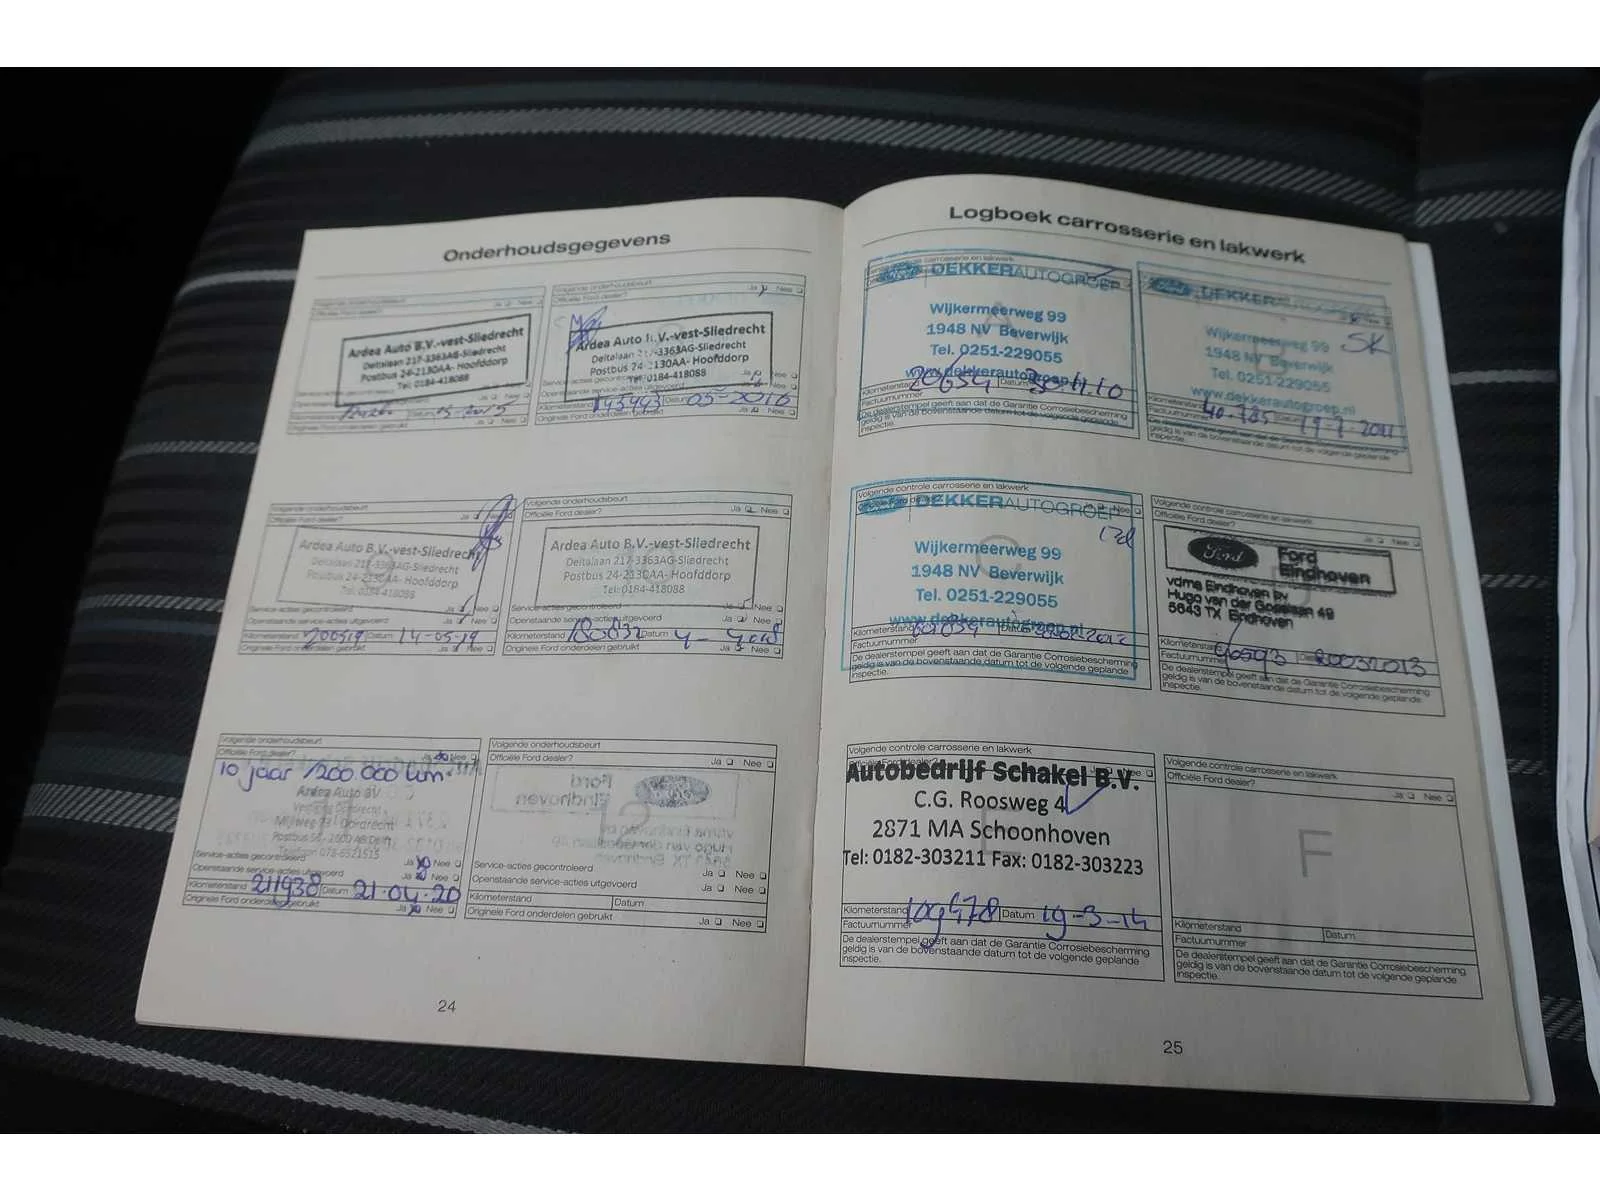 Onderhoudsgegevens
Officiële Ford dealer?
Ja Nee
Ardea Auto B.V.-vest-Sliedrecht
Deltalaan 217-3363AG-Sliedrecht
Postbus 24-2130AA- Hoofddorp
Tel: 0184-418088
Kilometerstand Datum 05-2015
Originele Ford onderdelen gebruikt Ja Nee
Volgende onderhoudsbeurt
Officiële Ford dealer?
Ja Nee
Ardea Auto B.V.-vest-Sliedrecht
Deltalaan 217-3363AG-Sliedrecht
Postbus 24-2130AA- Hoofddorp
Tel: 0184-418088
Kilometerstand 143443 Datum 05-2016
Originele Ford onderdelen gebruikt Ja Nee
Volgende onderhoudsbeurt
Officiële Ford dealer?
Ja Nee
Ardea Auto B.V.-vest-Sliedrecht
Deltalaan 217-3363AG-Sliedrecht
Postbus 24-2130AA- Hoofddorp
Tel: 0184-418088
Service-acties gecontroleerd Ja Nee
Openstaande service-acties uitgevoerd
Kilometerstand 200519 Datum 14-05-19
Originele Ford onderdelen gebruikt Ja Nee
Volgende onderhoudsbeurt
Officiële Ford dealer?
Ja Nee
Ardea Auto B.V.-vest-Sliedrecht
Deltalaan 217-3363AG-Sliedrecht
Postbus 24-2130AA- Hoofddorp
Tel: 0184-418088
Service-acties gecontroleerd Ja Nee
Openstaande service-acties uitgevoerd Ja Nee
Kilometerstand Datum 4-2018
Originele Ford onderdelen gebruikt Ja Nee
Volgende onderhoudsbeurt
Officiële Ford dealer?
Ja Nee
10 jaar /200.000 km.
Ardea Auto BV
Vestiging Dordrecht
Mijlweg 73 - Dordrecht
Telefoon 078-6521515
Service-acties gecontroleerd Ja Nee
Openstaande service-acties uitgevoerd Ja Nee
Kilometerstand 211938 Datum 21-04-20
Originele Ford onderdelen gebruikt Ja Nee
Volgende onderhoudsbeurt
Officiële Ford dealer?
Ja Nee
Service-acties gecontroleerd Ja Nee
Openstaande service-acties uitgevoerd Ja Nee
Kilometerstand Datum
Originele Ford onderdelen gebruikt Ja Nee
24
Logboek carrosserie en lakwerk
DEKKERAUTOGROEP
A
Wijkermeerweg 99
1948 NV Beverwijk
Tel. 0251-229055
www.dekkerautogroep.nl
Kilometerstand Datum
Factuurnummer
De dealerstempel geeft aan dat de Garantie Corrosiebescherming
geldig is van bovenstaande datum tot de volgende geplande
inspectie.
DEKKERAUTOGROEP
SK
Wijkermeerweg 99
1948 NV Beverwijk
Tel. 0251-229055
www.dekkerautogroep.nl
Kilometerstand 40.785 Datum 19-7-2011
Factuurnummer
De dealerstempel geeft aan dat de Garantie Corrosiebescherming
geldig is van bovenstaande datum tot de volgende geplande
inspectie.
Volgende controle carrosserie en lakwerk
DEKKERAUTOGROEP
C
Wijkermeerweg 99
1948 NV Beverwijk
Tel. 0251-229055
www.dekkerautogroep.nl
Kilometerstand Datum
Factuurnummer
De dealerstempel geeft aan dat de Garantie Corrosiebescherming
geldig is van bovenstaande datum tot de volgende geplande
inspectie.
Volgende controle carrosserie en lakwerk
Officiële Ford dealer?
Ja Nee
Ford Ford
Eindhoven
vdma Eindhoven bv
Hugo van der Goeslaan 49
5643 TX Eindhoven
Kilometerstand 46593 Datum 20032013
Factuurnummer
De dealerstempel geeft aan dat de Garantie Corrosiebescherming
geldig is van bovenstaande datum tot de volgende geplande
inspectie.
Volgende controle carrosserie en lakwerk
Autobedrijf Schakel B.V.
C.G. Roosweg 4
2871 MA Schoonhoven
Tel: 0182-303211 Fax: 0182-303223
Kilometerstand 109478 Datum 19-3-14
Factuurnummer
De dealerstempel geeft aan dat de Garantie Corrosiebescherming
geldig is van bovenstaande datum tot de volgende geplande
inspectie.
Volgende controle carrosserie en lakwerk
Officiële Ford dealer?
Ja Nee
F
Kilometerstand Datum
Factuurnummer
De dealerstempel geeft aan dat de Garantie Corrosiebescherming
geldig is van bovenstaande datum tot de volgende geplande
inspectie.
25